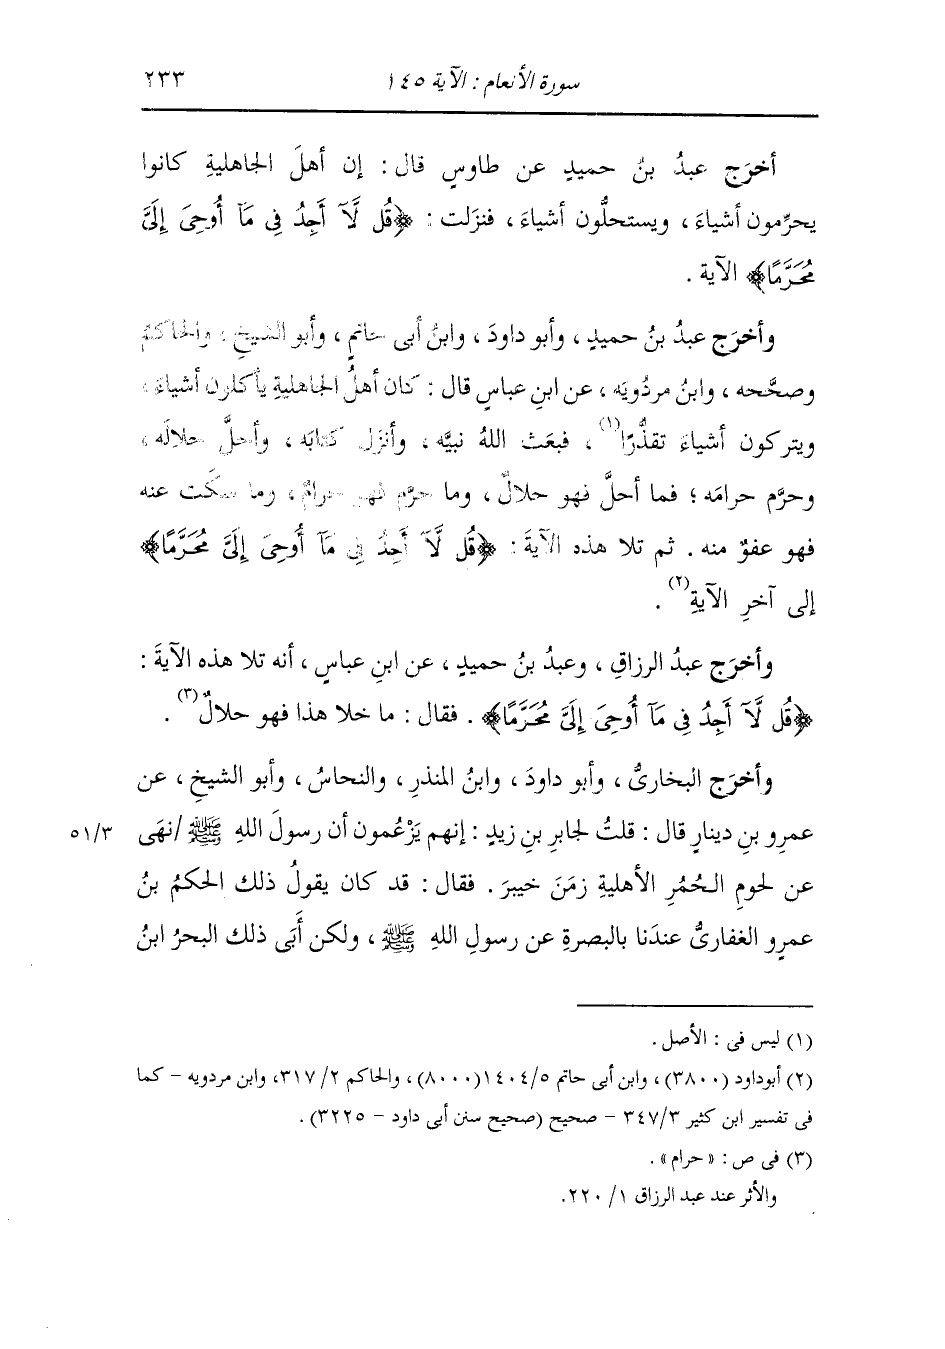 سورة الأنعام : الآية ١٤٥ ٢٣٣
أخرَج عبدُ بنُ حميدٍ عن طاوسٍ قال : إن أهلَ الجاهليةِ كانوا
يحرِّمون أشياءَ ، ويستحلُّون أشياءَ ، فنزَلت : ﴿قُل لَّآ أَجِدُ فِى مَآ أُوحِىَ إِلَىَّ
مُحَرَّمًا﴾ الآية .
وأخرَج عبدُ بنُ حميدٍ ، وأبو داودَ ، وابنُ أبى حاتمٍ ، وأبو الشيخِ ، والحاكمُ
وصحَّحه ، وابنُ مردُويَه ، عن ابنِ عباسٍ قال : كان أهلُ الجاهليةِ يأكلون أشياءَ ،
ويتركون أشياءَ تقذُّرًا(١) ، فبعَث اللهُ نبيَّه ، وأنزَل كتابَه ، وأحلَّ حلالَه ،
وحرَّم حرامَه ؛ فما أحلَّ فهو حلالٌ ، وما حرَّم فهو حرامٌ ، وما سكَت عنه
فهو عفوٌ منه . ثم تلا هذه الآيةَ : ﴿قُل لَّآ أَجِدُ فِى مَآ أُوحِىَ إِلَىَّ مُحَرَّمًا﴾
إلى آخرِ الآيةِ(٢) .
وأخرَج عبدُ الرزاقِ ، وعبدُ بنُ حميدٍ ، عن ابنِ عباسٍ ، أنه تلا هذه الآيةَ :
﴿قُل لَّآ أَجِدُ فِى مَآ أُوحِىَ إِلَىَّ مُحَرَّمًا﴾ . فقال : ما خلا هذا فهو حلالٌ(٣) .
وأخرَج البخارىُّ ، وأبو داودَ ، وابنُ المنذرِ ، والنحاسُ ، وأبو الشيخِ ، عن
عمرِو بنِ دينارٍ قال : قلتُ لجابرِ بنِ زيدٍ : إنهم يَزْعُمون أن رسولَ اللهِ ﷺ /نهَى ٥١/٣
عن لحومِ الحُمُرِ الأهليةِ زمَنَ خيبرَ . فقال : قد كان يقولُ ذلك الحكمُ بنُ
عمرٍو الغفارىُّ عندَنا بالبصرةِ عن رسولِ اللهِ ﷺ ، ولكن أَبَى ذلك البحرُ ابنُ
(١) ليس فى : الأصل .
(٢) أبوداود (٣٨٠٠) ، وابن أبى حاتم ١٤٠٤/٥ (٨٠٠٠) ، والحاكم ٣١٧/٢، وابن مردويه - كما
فى تفسير ابن كثير ٣٤٧/٣ - صحيح (صحيح سنن أبى داود - ٣٢٢٥) .
(٣) فى ص : « حرام » .
والأثر عند عبد الرزاق ١/ ٢٢٠.